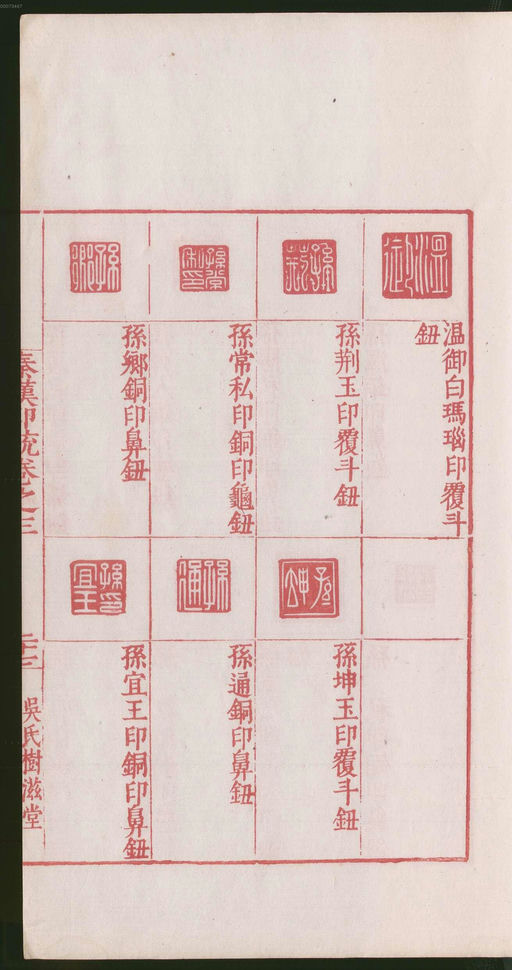 温御白瑪瑙印覆斗
鈕
孫荆玉印覆斗鈕
孫常私印銅印龜鈕
孫鄉銅印鼻鈕
孫坤玉印覆斗鈕
孫通銅印鼻鈕
孫宜王印銅印鼻鈕
秦漢印統卷之三
吳氏樹滋堂
00073467